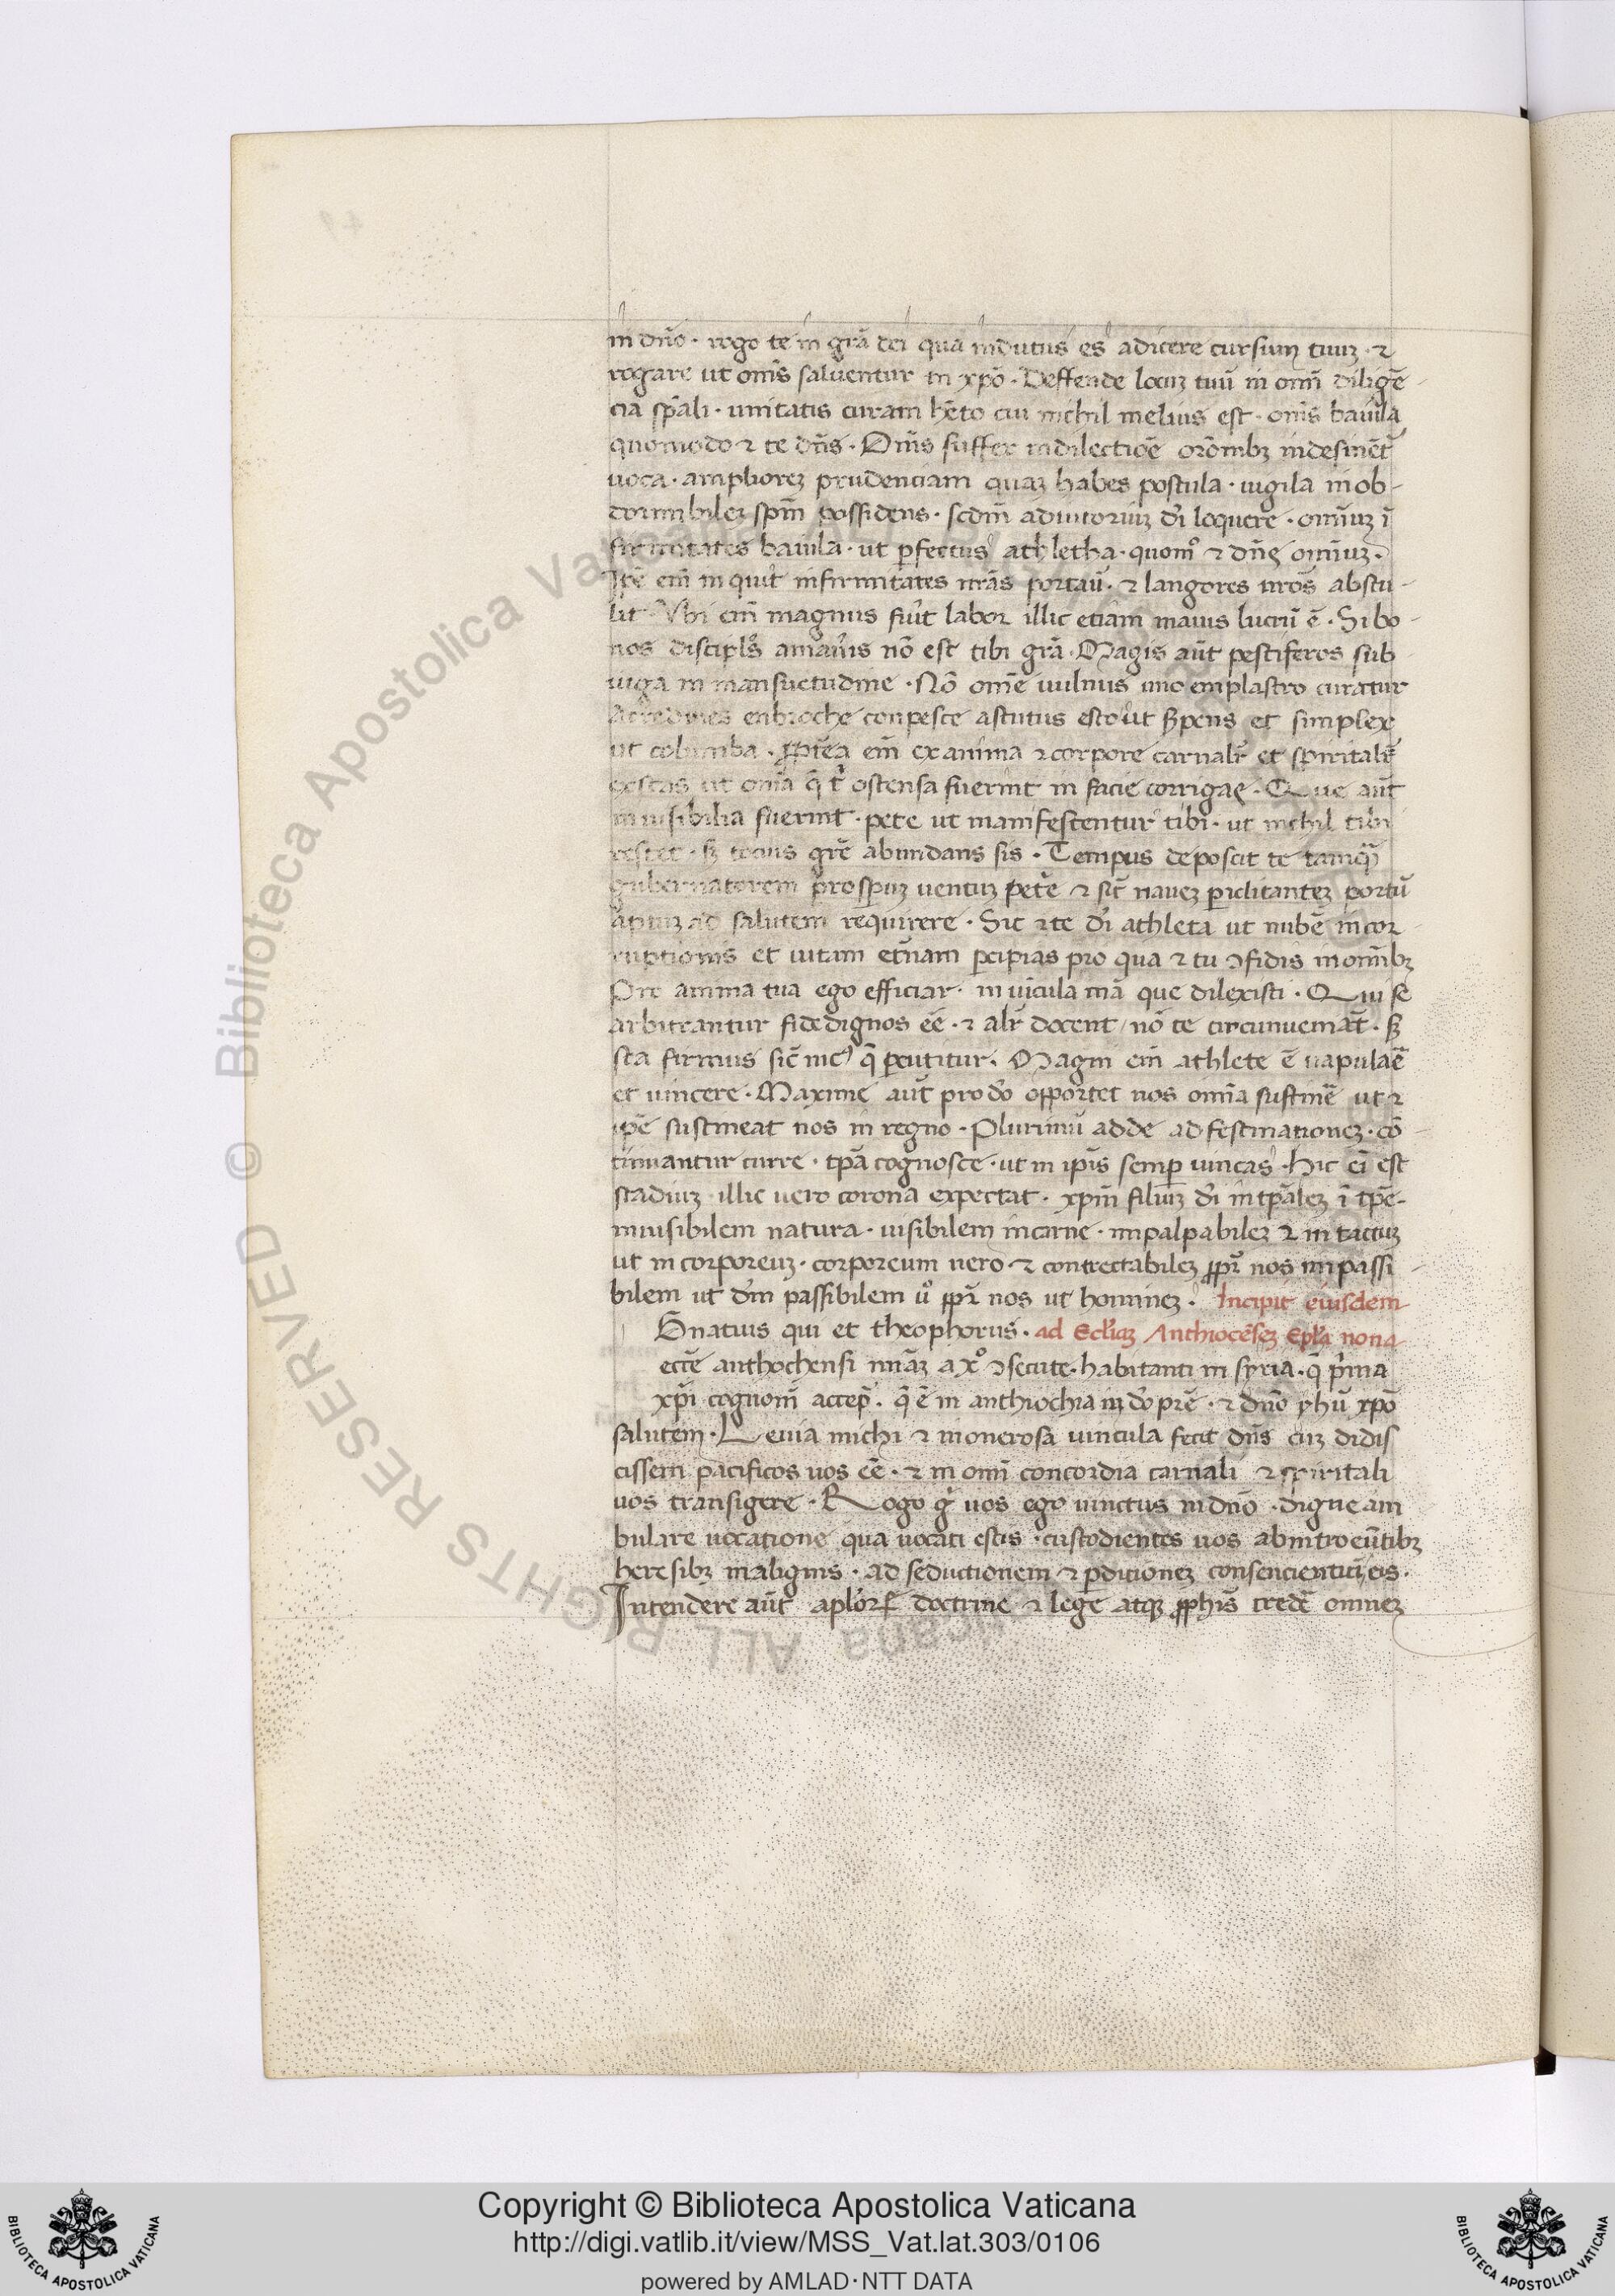 in dn̄o · rogo te in grā dei qua indutus es adicere cursum tuuꝫ · ⁊
rogare ut om̄s saluentur in xp̄o · Deffende locuꝫ tuū in om̄i diligē
cia sp̄ali · unitatis curam hēto cui nichil melius est · om̄s baiula
quomodo ⁊ te dn̄s · Om̄s suffer in dilectiōe orōnibꝫ indesinēt̄
uoca · ampliorēꝫ prudenciam quaꝫ habes postula · uigila in ob-
dormibileꝫ sp̄m possidens · scdm̄ adiutoriuꝫ dī loquere · omniuꝫ ī
firmitates baiula · ut ꝑfectus athletha · quomº ⁊ dn̄s omniuꝫ ·
Ip̄e em̄ inquit infirmitates nr̄as portauit · ⁊ langores nr̄os abstu-
lit · Vbi em̄ magnus fuit labor illic etiam maius lucrū ē · Si bo-
nos discipl̄os amaueris nō est tibi grā · Magis aūt pestiferos sub
iuga in mansuetudine · Nō om̄e uulnus uno emplastro curatur
Acredines enbroche conpesce astutus esto ut serpens et simplex
ut columba · ꝓpterea em̄ ex anima ⁊ corpore carnalr̄ et spiritalr̄
exstas ut om̄ia q̄ t̄ ostensa fuerint in facie corrigas · Que aūt
inuisibilia fuerint · pete ut manifestentur tibi · ut nichil tibi
restet · sꝫ tocius grē abundans sis · Tempus deposcit te tamq̄
gubernatorem prosperuꝫ uentuꝫ petē ⁊ sic̄ naueꝫ periclitanteꝫ portū
aptuꝫ ad salutem requirere · Sic ⁊ te dī athleta ut nubē incor
ruptionis et uitam et̄nam ꝑcipias pro qua ⁊ tu ꝯfidis in om̄ibꝫ
Pro anima tua ego efficiar · in uīcula mā que dilexisti · Qui se
arbitrantur fide dignos eē · ⁊ alr̄ docent / nō te circunueniāt · sꝫ
sta firmus sic̄ inc q̄ ꝑcutitur · Magni em̄ athlete ē uapularē
et uincere · Maxime aūt pro dō opportet nos om̄ia sustinē ut ⁊
ip̄e sustineat nos in regno · Plurimū adde ad festinationeꝫ · cō
tinuantur curre · tp̄a cognosce · ut in ip̄is semꝑ uincas · Hic ei est
stadiuꝫ · illic uero corona expectat · xp̄m filiuꝫ dī intp̄aleꝫ ī tp̄e-
inuisibilem natura · uisibilem in carne · impalpabileꝫ ⁊ in tactuꝫ
ut in corporeuꝫ · corporeum uero · ⁊ contrectabileꝫ ꝓpr̄ nos impassi-
bilem ut dm̄ passibilem uº ꝓpr̄ nos ut homineꝫ · Incipit eiusdem
Gnatius qui et theophorus · ad Ecl'iaꝫ Anthiocēseꝫ Epl'a nona
ecc̄e anthochensi mīaꝫ a xº ꝯsecute · habitanti in syria · q̄ prima
xp̄i cognom̄ accep̄ · q̄ ē in anthiochia in dō prē · ⁊ dn̄o yhū xp̄o
salutem · Leuia michi ⁊ inonerosa uincula fecit dn̄s cuꝫ didis
cissem pacificos uos eē · ⁊ in om̄i concordia carnali ⁊ spiritali
uos transigere · Rogo g̊ uos ego uinctus in dn̄o · digne am
bulare uocatione qua uocati estis · custodientes uos ab introeūtibꝫ
heresibꝫ malignis · ad seductionem ⁊ ꝑditioneꝫ consencientiū eis ·
Intendere aūt apl'orꝝ doctrine ⁊ legē atqꝫ ꝓphīs credē omneꝫ
© Biblioteca Apostolica Vaticana ALL RIGHTS RESERVED
Copyright © Biblioteca Apostolica Vaticana
http://digi.vatlib.it/view/MSS_Vat.lat.303/0106
powered by AMLAD · NTT DATA
BIBLIOTECA APOSTOLICA VATICANA
BIBLIOTECA APOSTOLICA VATICANA